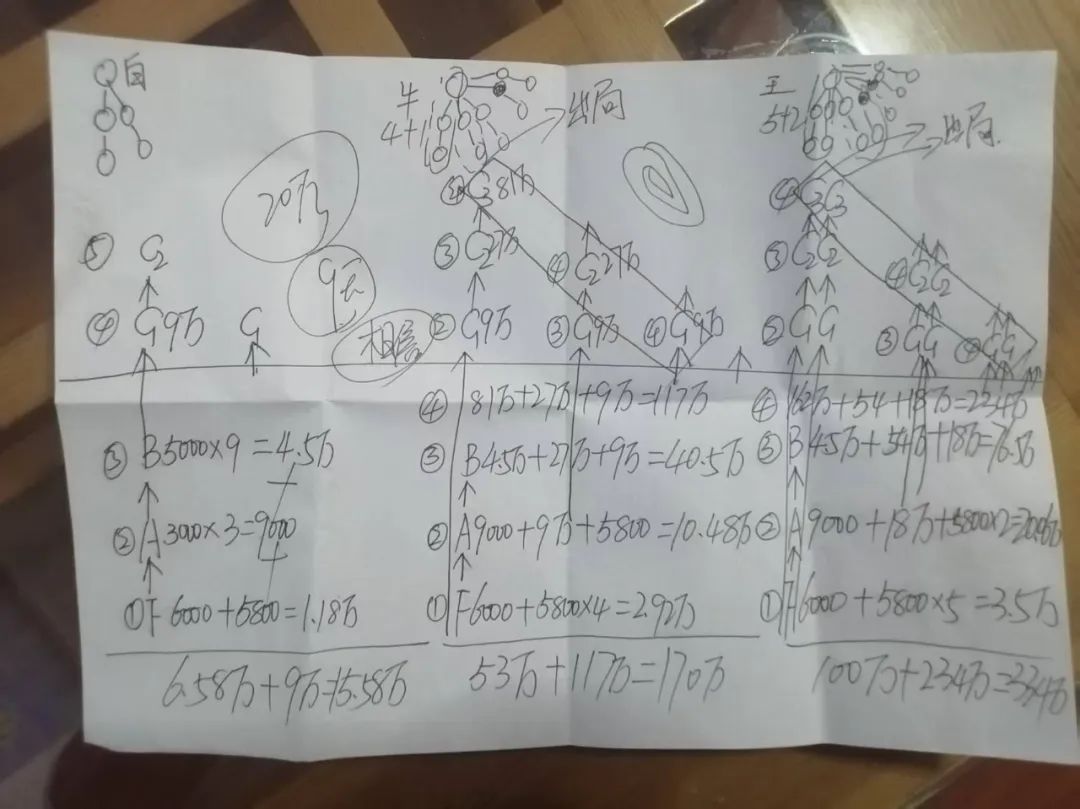 自
20万
9万
相信
⑤ G2
④ G9万 G
③ B5000×9=4.5万
+
② A3000×3=9000
+
① F6000+5800=1.18万
6.58万+9万=15.58万
4+1
出局
G381万
③ G27万
④ G227万
② G9万
③ G9万
④ G9万
④ 81万+27万+9万=117万
③ B4.5万+27万+9万=40.5万
② A9000+9万+5800=10.48万
① F6000+5800×4=2.92万
53万+117万=170万
王
5+2
出局
④ G3G3
③ G2G2
④ G2G2
② GG
③ GG
④ GG
④ 162万+54+18万=234万
③ B4.5万+54万+18万=76.5万
② A9000+18万+5800×2=20.06万
① 6000+5800×5=3.5万
100万+234万=334万